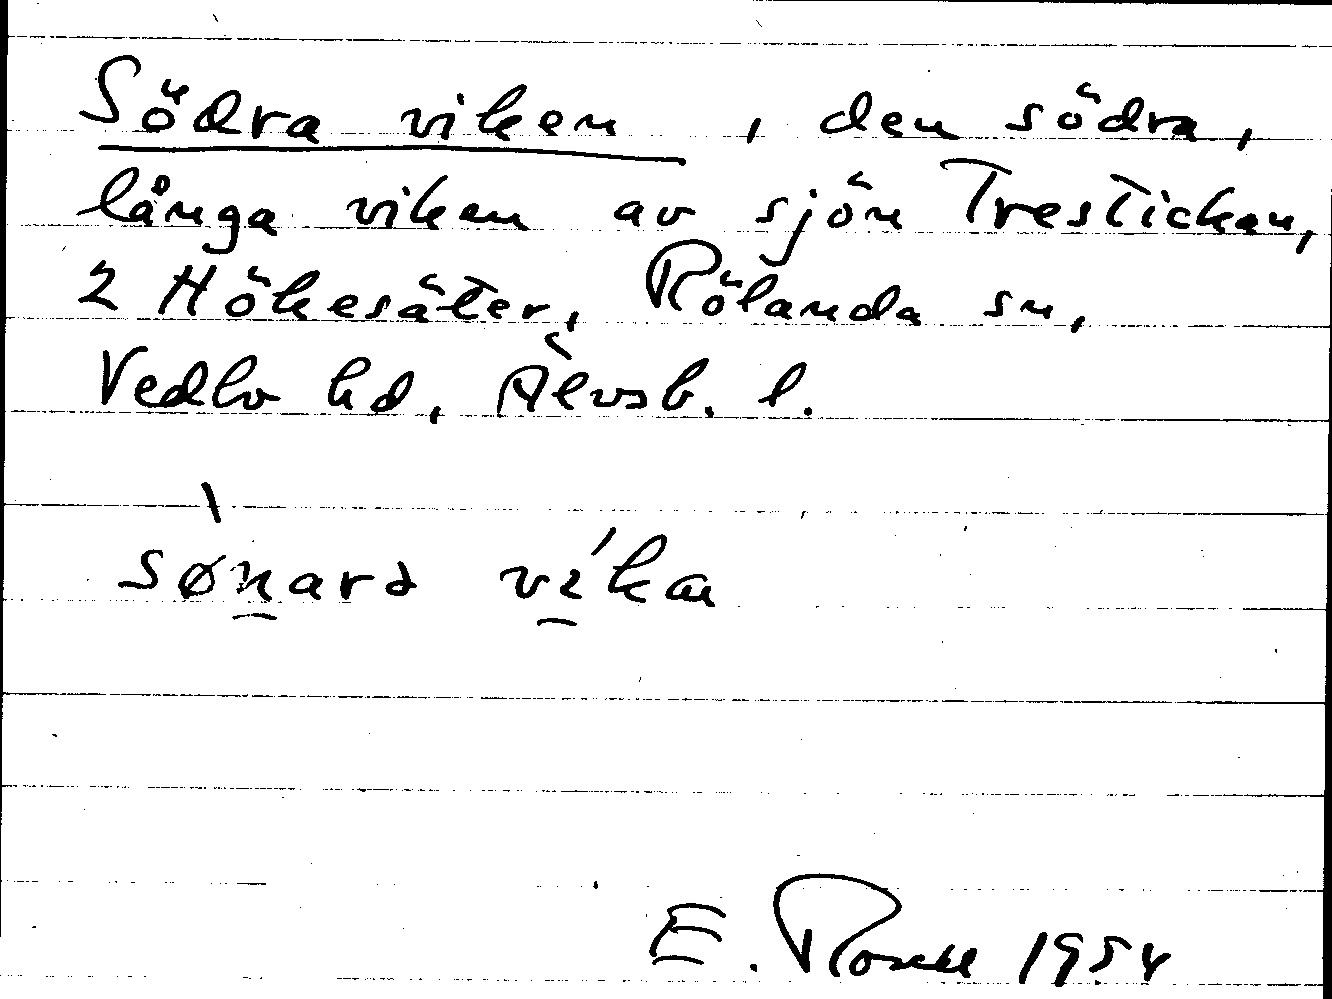 Södra viken, den södra,
långa viken av sjön Trestickan,
2 Hökesäter, Rölanda sn,
Vedbo hd, Älvsb. l.
sønarə vikan
E. Rosell 1954